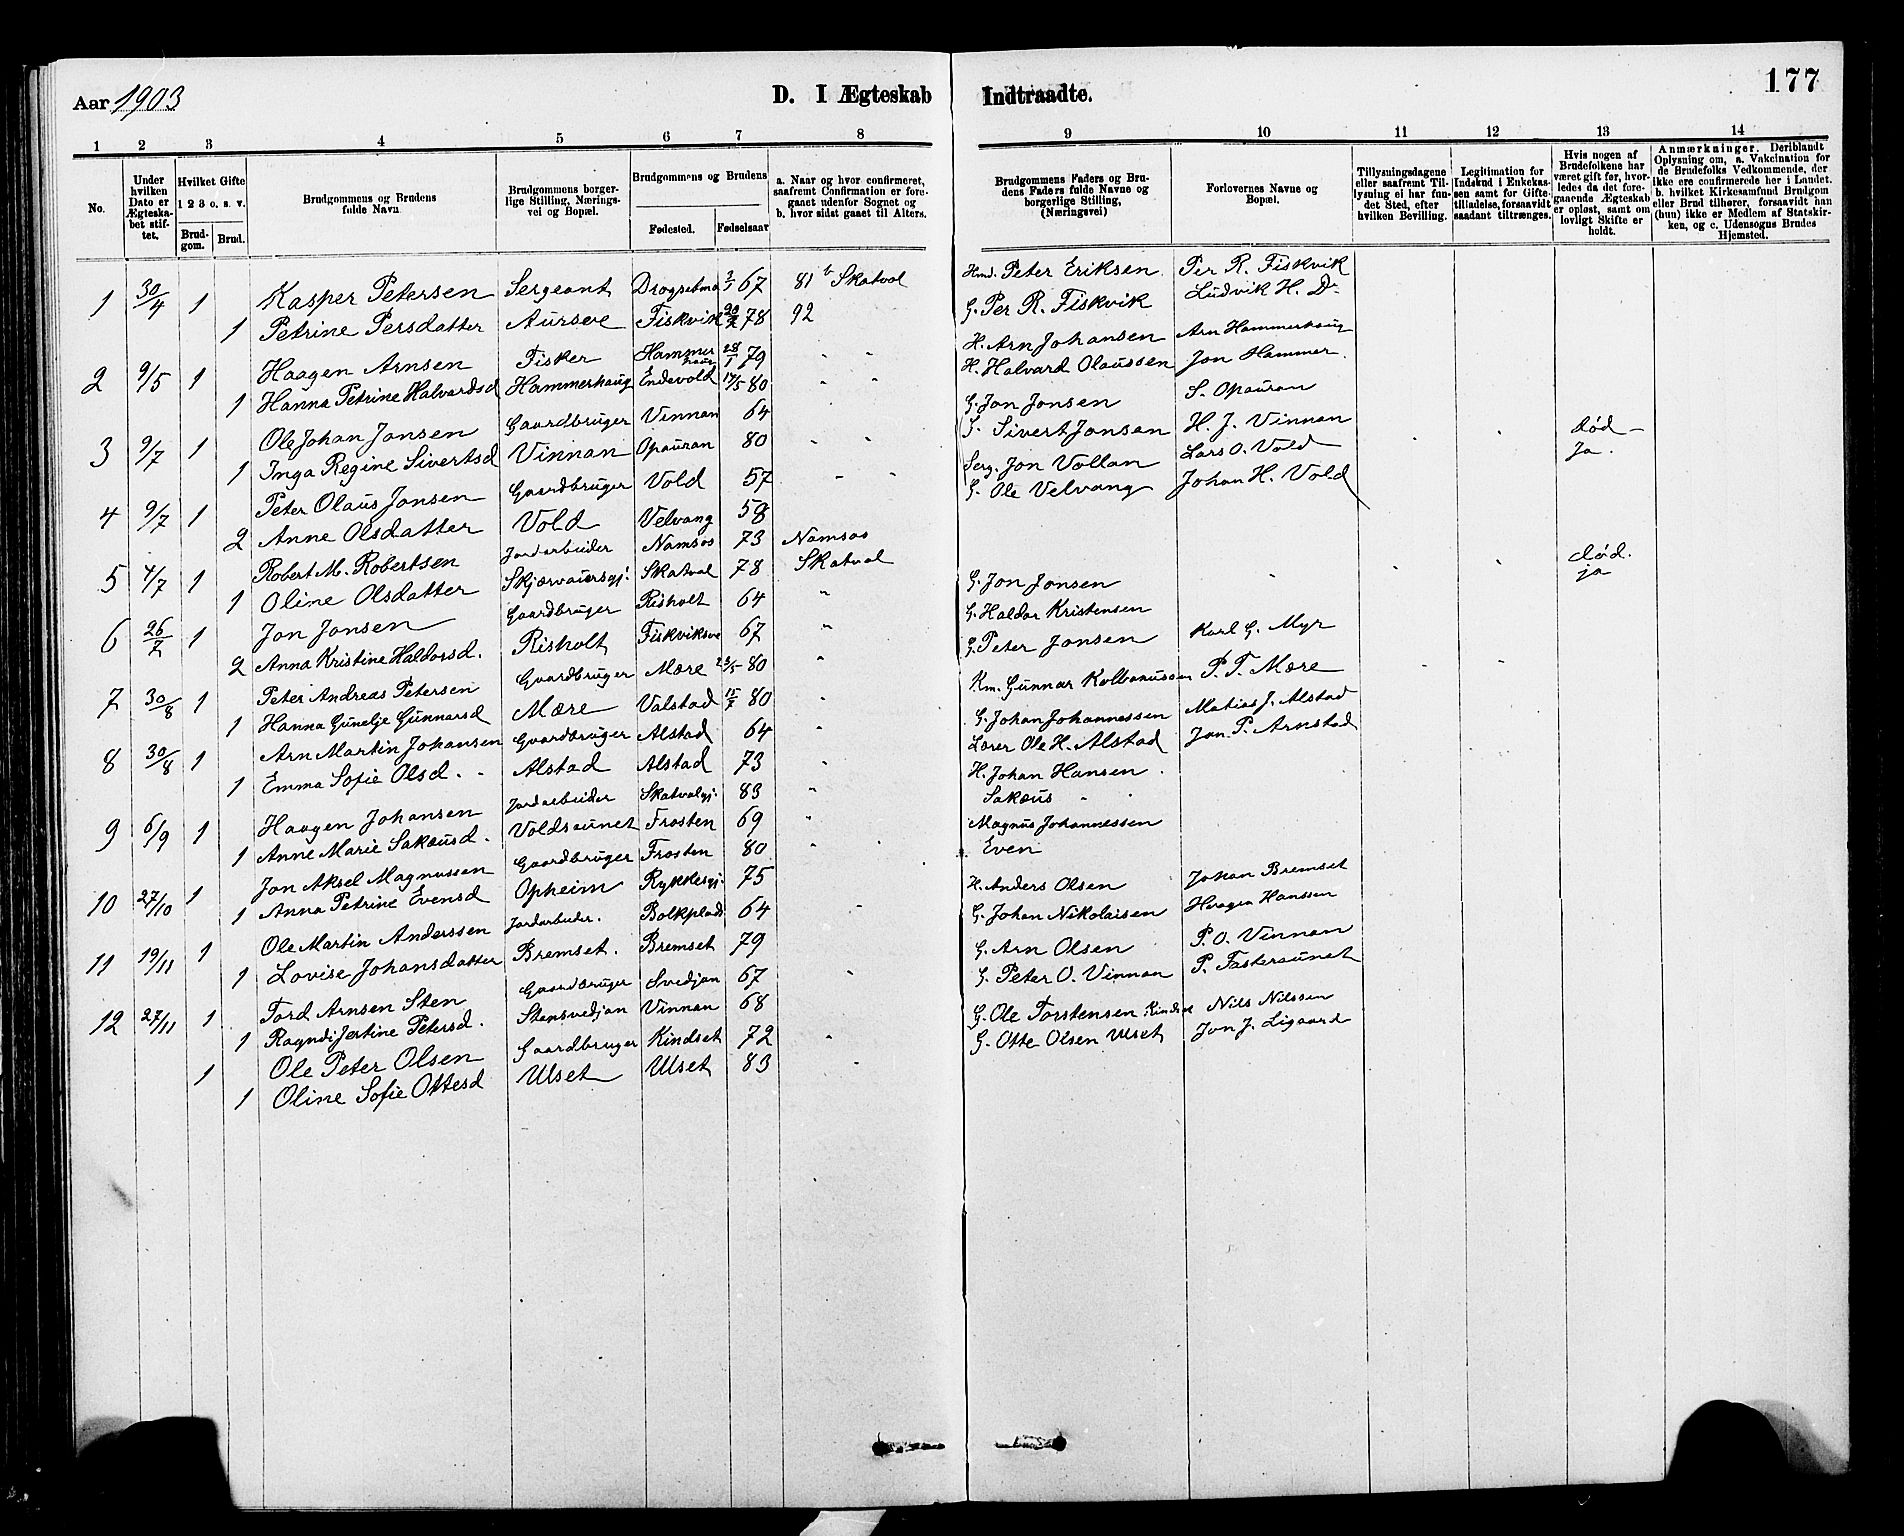 Aar 1903
D. I Ægteskab Indtraadte.
177
1 2 3 4 5 6 7 8 9 10 11 12 13 14
No.
Under hvilken Dato er Ægteskabet stiftet.
Hvilket Gifte 1 2 3 o. s. v.
Brudgom. Brud.
Brudgommens og Brudens fulde Navn.
Brudgommens borgerlige Stilling, Næringsvei og Bopæl.
Brudgommens og Brudens
Fødested. Fødselsaar
a. Naar og hvor confirmeret, saafremt Confirmation er foregaaet udenfor Sognet og b. hvor sidst gaaet til Alters.
Brudgommens Faders og Brudens Faders fulde Navne og borgerlige Stilling, (Næringsvei)
Forlovernes Navne og Bopæl.
Tillysningsdagene eller saafremt Tillysning ei har fundet Sted, efter hvilken Bevilling.
Legitimation for Indskud i Enkekassen samt for Giftetilladelse, forsaavidt saadant tiltrænges.
Hvis nogen af Brudefolkene har været gift før, hvorledes da det foregaaende Ægteskab er opløst, samt om lovligt Skifte er holdt.
Anmærkninger. Deriblandt Oplysning om, a. Vakcination for de Brudefolks Vedkommende, der ikke ere confirmerede her i Landet. b. hvilket Kirkesamfund Brudgom eller Brud tilhører, forsaavidt han (hun) ikke er Medlem af Statskirken, og c. Udensogns Brudes Hjemsted.
1 30/4 1 Kasper Petersen Sergeant Drogsetmo 2/1 67 81 Skatval Hmd. Peter Eriksen Per R. Fiskvik
1 Petrine Persdatter Aursve Fiskvik 78 92 G. Per R. Fiskvik Ludvik H. Do
2 9/5 1 Haagen Arnsen Fisker Hammerhaug 28/1 79 " " H. Arn Johansen Arn Hammerhaug
1 Hanna Petrine Halvardsd Hammerhaug Endevold 17/5 80 " " H. Halvard Olaussen Jon Hammer.
3 9/7 1 Ole Johan Jonsen Gaardbruger Vinnan 64 G. Jon Jonsen S. Opauran
1 Inga Regine Sivertsd Vinnan Opauran 80 " " S. Sivert Jonsen H. J. Vinnan
4 9/7 1 Peter Olaus Jonsen Gaardbruger Vold 57 " " Serg. Jon Vollan Lars O. Vold død -
2 Anne Olsdatter Vold Velvang 58 G. Ole Velvang Johan H. Vold Ja.
5 4/7 1 Robert M. Robertsen Jordarbeider Namsos 73 Namsos
1 Oline Olsdatter Skjærvauersgj. Skatval 78 Skatval
6 26/7 1 Jon Jonsen Gaardbruger Risholt 64 " G. Jon Jonsen død.
2 Anna Kristine Haldorsd. Risholt Fiskviksve 67 " G. Haldor Kristensen ja
7 30/8 1 Peter Andreas Petersen Gaardbruger Mære 23/5 80 " G. Peter Jonsen Karl G. Myr
1 Hanna Gunelje Gunnarsd Mære Valstad 15/7 80 " Km. Gunnar Kolbanussen P. T. Mære
8 30/8 1 Arn Martin Johansen Gaardbruger Alstad 64 " G. Johan Johannessen Matias J. Alstad
1 Emma Sofie Olsd. Alstad Alstad 73 " Lærer Ole H. Alstad Jon P. Arnstad
9 6/9 1 Haagen Johansen Jordarbeider Skatvalgj. 83 " H. Johan Hansen
1 Anne Marie Sakæusd. Voldsaunet Frosten 69 " Sakæus "
10 27/10 1 Jon Aksel Magnussen Gaardbruger Frosten 80 " Magnus Johannessen
1 Anna Petrine Evensd Opheim Rykkesgj. 75 Even
11 19/11 1 Ole Martin Anderssen Jordarbeider. Bolkplads 64 " H. Anders Olsen Johan Bremset
1 Lovise Johansdatter Bremset. Bremset 79 G. Johan Nikolaisen Haagen Hanssen
12 27/11 1 Tord Arnsen Sten Gaardbruger Svedjan 67 " G. Arn Olsen P. O. Vinnan
1 Ragndi Jertine Petersd. Stensvedjan Vinnan 68 G. Peter O. Vinnan P. Fasteraunet
1 Ole Peter Olsen Gaardbruger Kindset 72 " G. Ole Torstensen Kindset Nils Nilssen
1 Oline Sofie Ottesd Ulset Ulset 83 " G. Otte Olsen Ulset Jon J. Ligaard